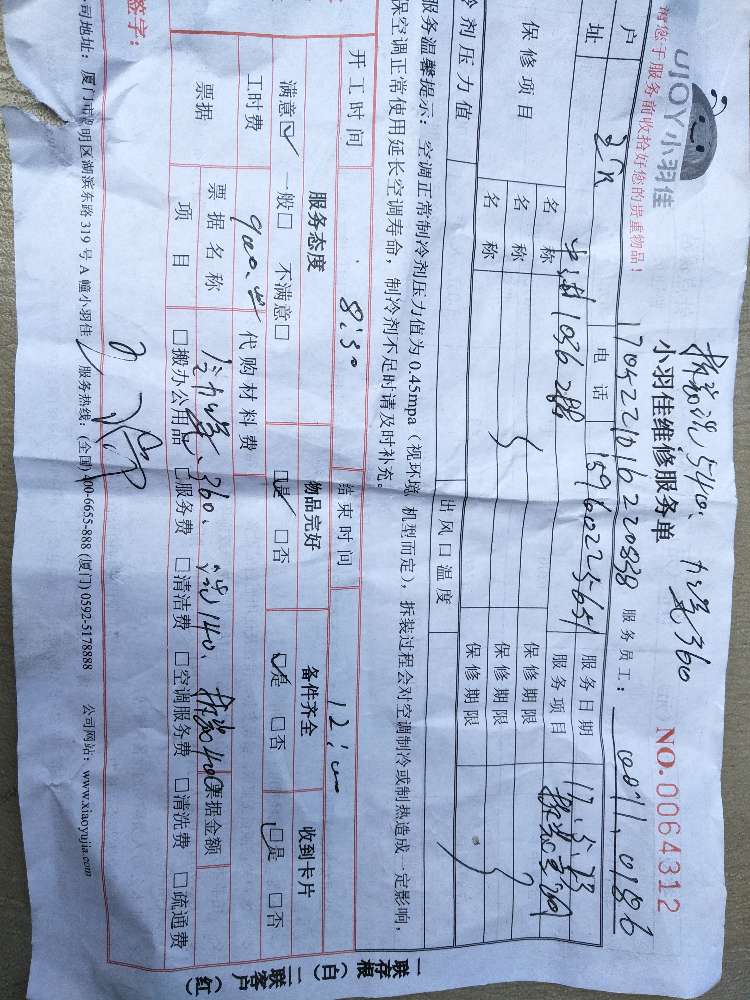 UJOY小羽佳
拆装洗540、加氨360
请您于服务前收拾好您的贵重物品！
小羽佳维修服务单
NO.0064312
1704221016220838
服务员工：
0071、0186
户
电话
15960225651
服务日期
17.5.23
址
服务项目
保修项目
名称
保修期限
名称
保修期限
名称
保修期限
冷剂压力值
出风口温度
服务温馨提示：空调正常制冷剂压力值为0.45mpa（视环境、机型而定），拆装过程会对空调制冷或制热造成一定影响，
保空调正常使用延长空调寿命，制冷剂不足时请及时补充。
开工时间
8:30
结束时间
12:00
服务态度
物品完好
备件齐全
收到卡片
满意☑ 一般□ 不满意□
☑是 □否
☑是 □否
☑是 □否
工时费
900.
代购材料费
票据
票据名称
360、洗140、拆装400
票据金额
项目
□搬办公用品 □服务费 □清洁费 □空调服务费 □清洗费 □疏通费
签字：
司地址：厦门市思明区湖滨东路319号A幢小羽佳
服务热线：(全国)400-6655-888 (厦门) 0592-5178888
公司网站：www.xiaoyujia.com
一联存根（白） 二联客户（红）